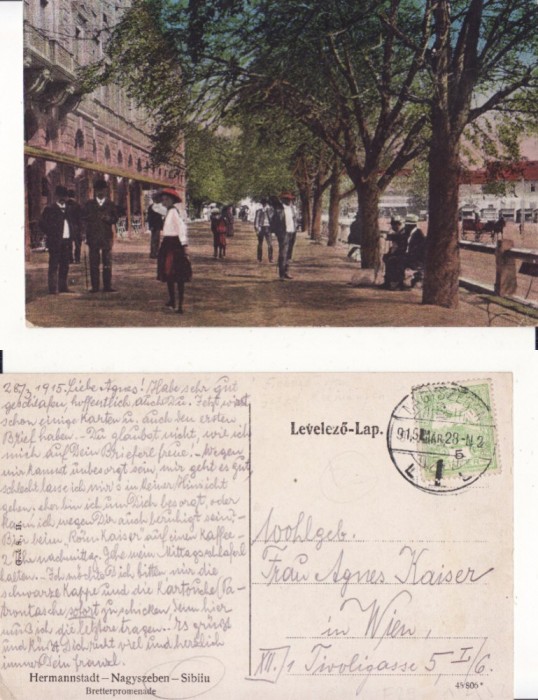 28/3. 1915. Liebe Agnes! Habe sehr gut
geschlafen, hoffentlich auch Du. Jetzt wirst
schon einige Karten u. auch den ersten
Brief haben. – Du glaubst nicht, wie ich
mich auf Dein Brieferl freue! Wegen
mir kannst unbesorgt sein, mir geht es gut,
schlecht lasse ich mir's in keiner Hinsicht
gehen, eher bin ich um Dich besorgt, oder
kann ich wegen Dir auch beruhigt sein? –
Bin beim „Röm. Kaiser" auf einen Kaffee –
2 Uhr nachmittag. Habe mein Mittagsschlaferl
halten. – Ich möchte Dich bitten mir die
schwarze Kappe und die Kartouche (Pa-
trontasche) sofort zu schicken, denn hier
muß ich die letztere tragen. Es grüßt
und küßt Dich recht viel und herzlich
immer Dein Franzl.
Hermannstadt – Nagyszeben – Sibiiu
Bretterpromenade
Levelező-Lap.
NAGYSZEBEN
915 MAR 28 - N 2
Wohlgeb.
Frau Agnes Kaiser
in Wien,
XII./1 Tivoligasse 5, I/6.
45806*